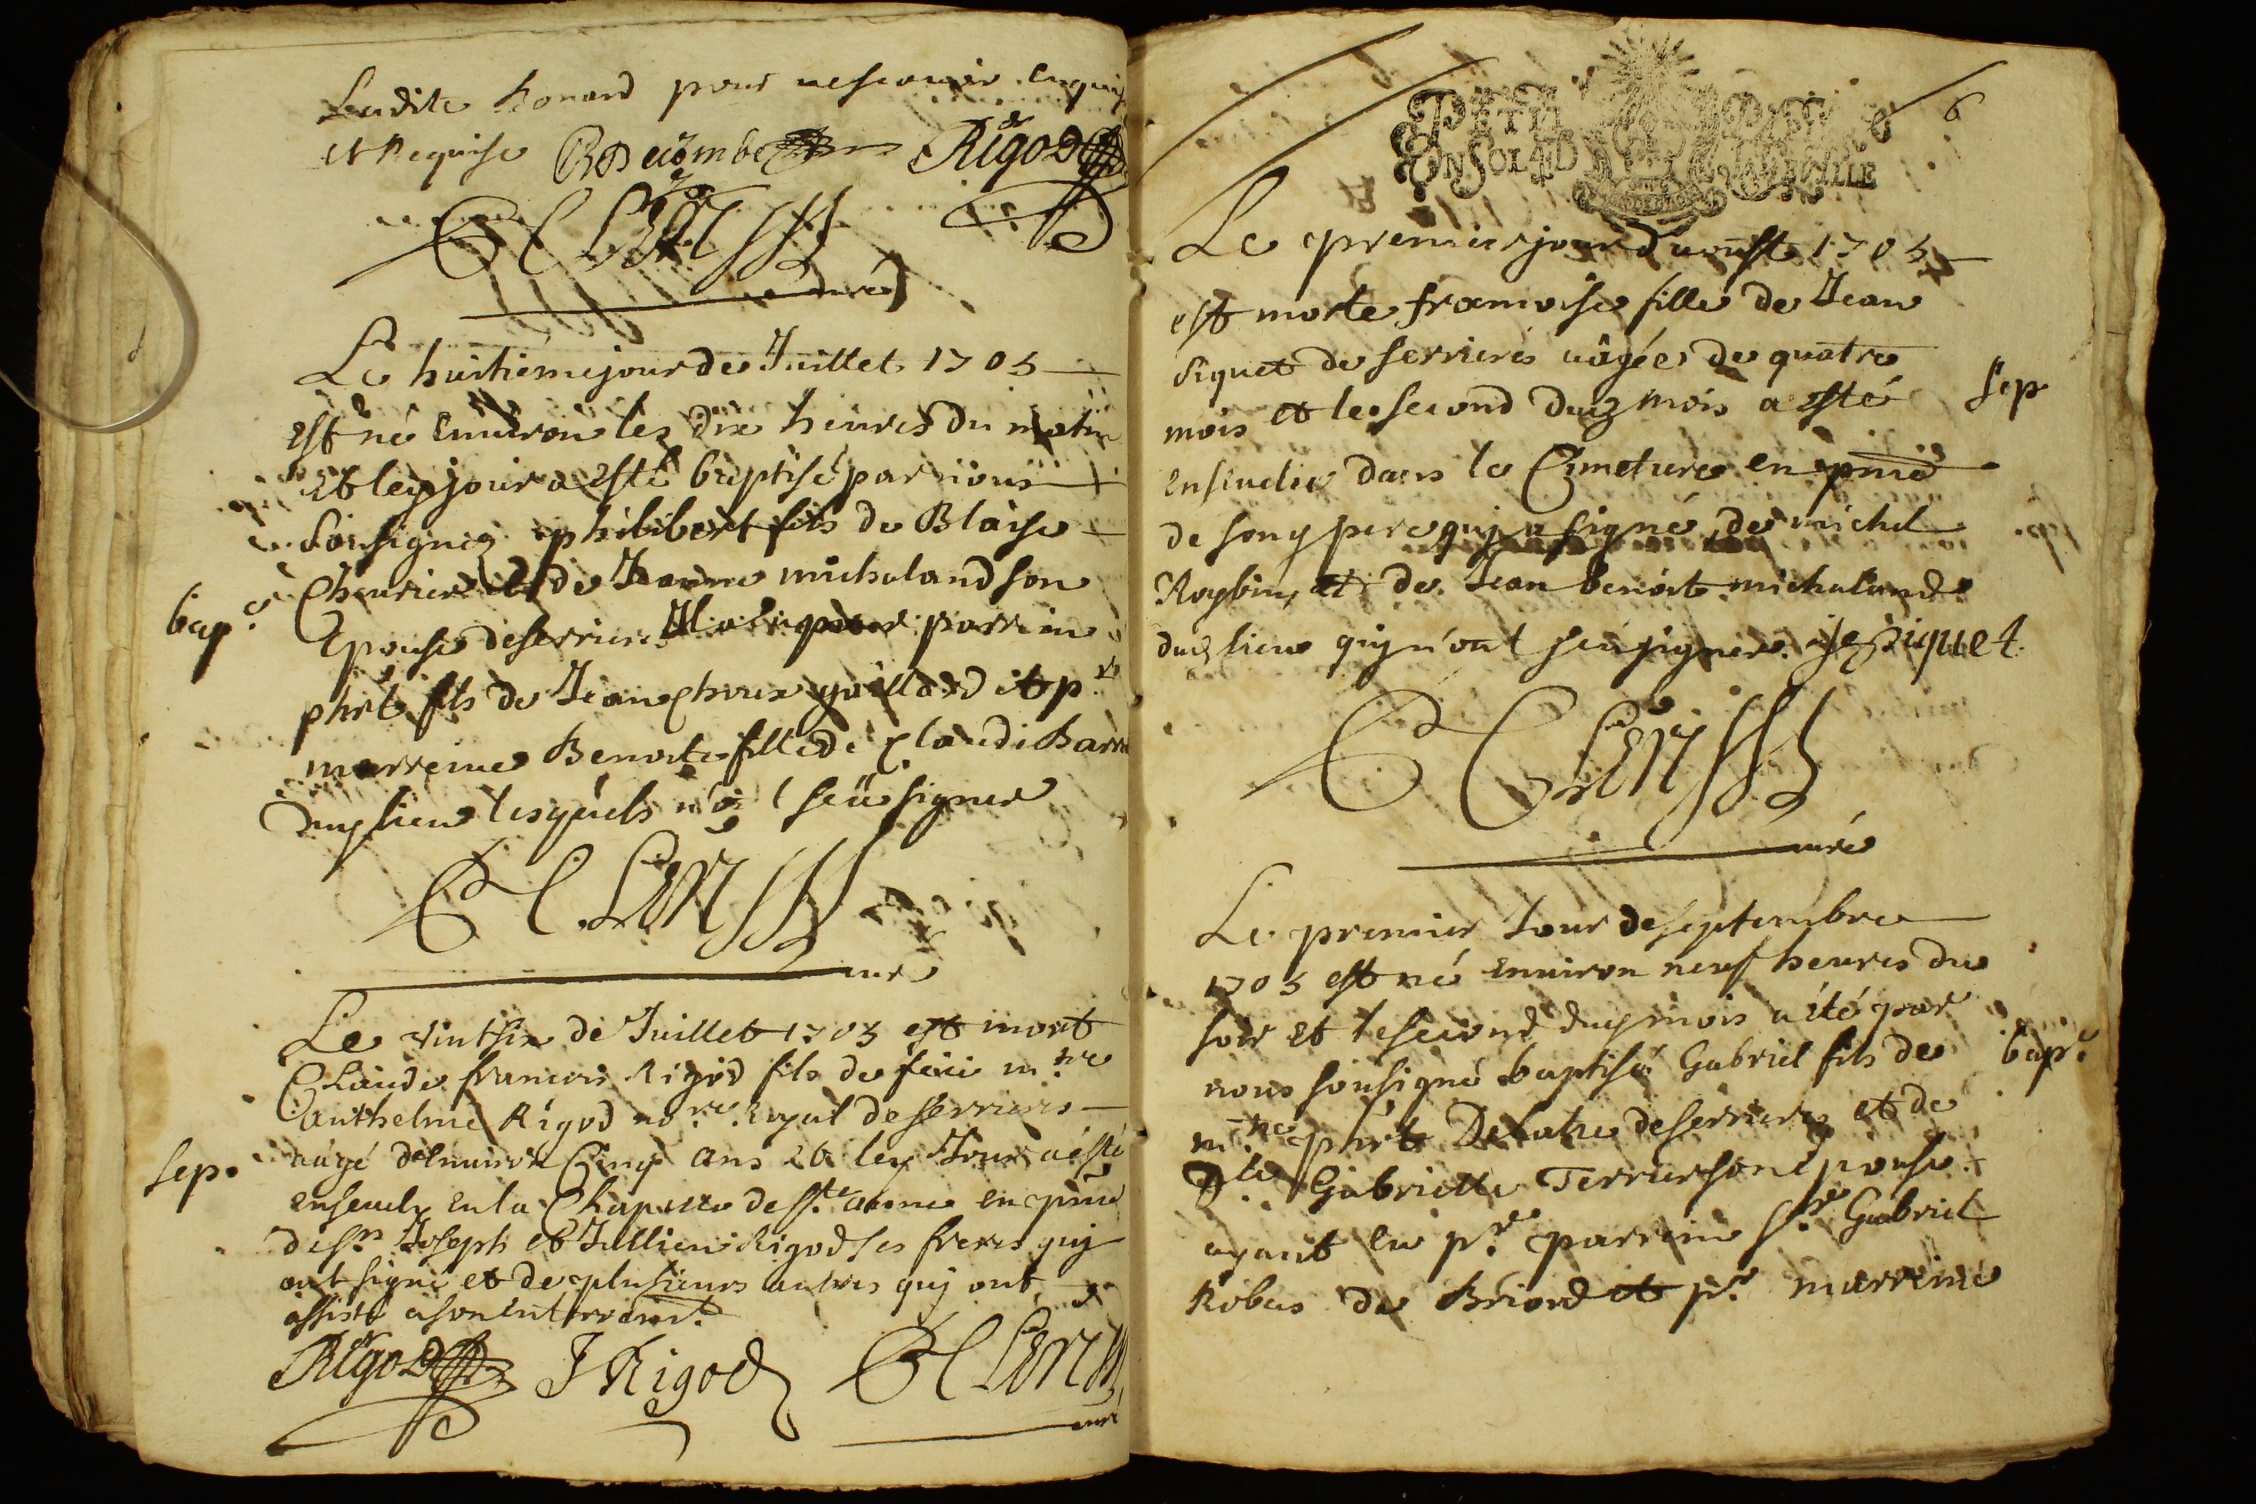 Ladite Bonard pour ne scavoir enquise
et Requise Rigod
curé
Le huitiéme jour de Juillet 1705
est né Environ les dix heures du matin
Et led jour a esté baptisé par nous
soussigné philibert fils de Blaise
bap.e
Cheurier et de Jeanne michaland son
Epouse de serrieres Il a eu pour parrein
phirt fils de Jean Choux gaillard et pr
marreine Benoite fille de Claude
dud lieu lesquels n'ont sceu signer
curé
Le vintsix de Juillet 1705 est mort
Claude francois Rigod fils de feu m.re
Anthelme Rigod no.re Royal de serrieres
sep.
aagé d'environ Cinq ans Et led Jour a esté
ensevely en la Chapelle de ste anne en pñce
des srs Joseph et Jullien Rigod ses freres quj
ont signé et de plusieurs autres quj ont
assisté a son enterremt.
Rigod J Rigod
curé
6
PETIT PAPIER
UN SOL 4 D LA FEUILLE
Le premier jour d'aoust 1705
est morte francoise fille de Jean
Piquet de serrieres aagée de quatre
mois et le second dud mois a esté
sep
ensevelie dans le Cimetiere en pñce
de song pere quj a signé, de michel
Roybin, et de Jean benoit michaland
dud lieu quj n'ont sceu signer. Je piquet
curé
Le premier Jour de septembre
1705 est né Environ neuf heures du
soir et le second dud mois a été par
nous soussigné baptisé Gabriel fils de
bap.e
m.re phirt Delatre de serrieres et de
Dlle Gabrielle Terrier son Epouse
ayant eu pr. parrein sr. Gabriel
Robas de Briord et pr. marreine